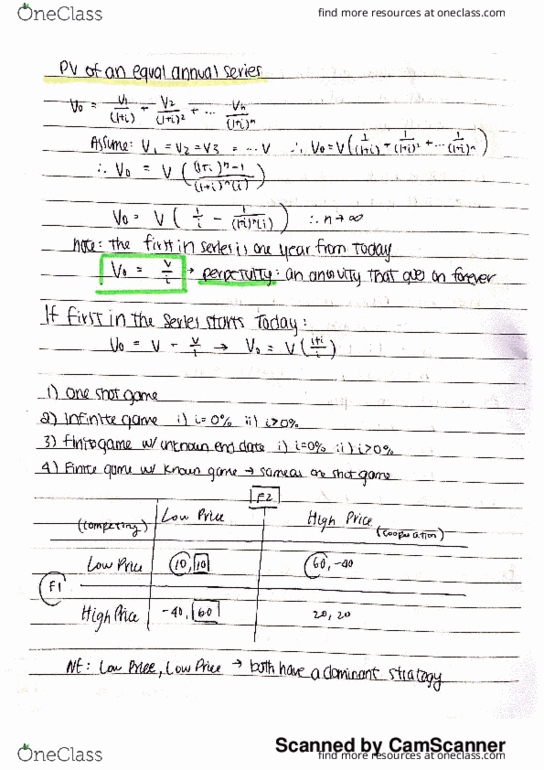 OneClass find more resources at oneclass.com
PV of an equal annual series
V₀ = V₁/(1+i) + V₂/(1+i)² + ... Vn/(1+i)ⁿ
Assume: V₁ = V₂ = V₃ = ... V ∴ V₀ = V(1/(1+i) + 1/(1+i)² + ... 1/(1+i)ⁿ)
∴ V₀ = V((1+i)ⁿ-1/(1+i)ⁿ(i))
V₀ = V(1/i - 1/(1+i)ⁿ(i)) ∴ n→∞
note: the first in series is one year from Today
V₀ = V/i → perpetuity: an annuity that goes on forever
If first in the series starts Today:
V₀ = V - V/i → V₀ = V(1+i/i)
1) One shot game
2) Infinite game i) i=0% ii) i>0%
3) Finite game w/ unknown end date i) i=0% ii) i>0%
4) Finite game w/ known game → same as one shot game
F2
(competing) Low Price High Price (cooperation)
Low Price 10, 10 60, -40
F1
High Price -40, 60 20, 20
NE: Low Price, Low Price → both have a dominant strategy
Scanned by CamScanner
OneClass find more resources at oneclass.com